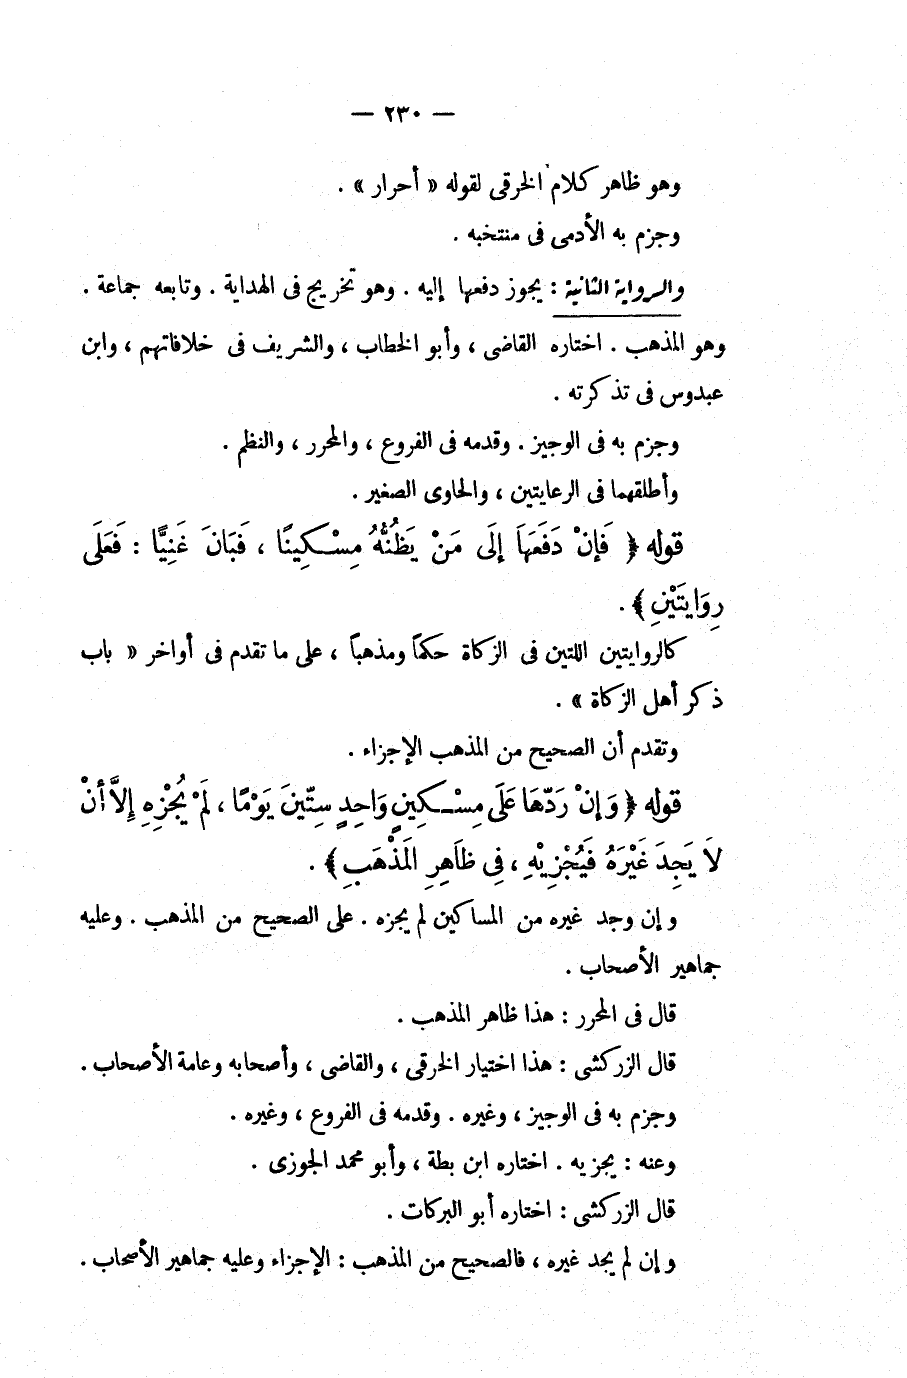 — ٢٣٠ —
وهو ظاهر كلام الخرقى لقوله « أحرار » .
وجزم به الأدمى فى منتخبه .
والرواية الثانية : يجوز دفعها إليه . وهو تخريج فى الهداية . وتابعه جماعة .
وهو المذهب . اختاره القاضى ، وأبو الخطاب ، والشريف فى خلافاتهم ، وابن
عبدوس فى تذكرته .
وجزم به فى الوجيز . وقدمه فى الفروع ، والمحرر ، والنظم .
وأطلقهما فى الرعايتين ، والحاوى الصغير .
قوله ﴿ فَإِنْ دَفَعَهَا إِلَى مَنْ يَظُنُّهُ مِسْكِينًا ، فَبَانَ غَنِيًّا : فَعَلَى
رِوَايَتَيْنِ ﴾ .
كالروايتين اللتين فى الزكاة حكماً ومذهباً ، على ما تقدم فى أواخر « باب
ذكر أهل الزكاة » .
وتقدم أن الصحيح من المذهب الإجزاء .
قوله ﴿ وَإِنْ رَدَّهَا عَلَى مِسْكِينٍ وَاحِدٍ سِتِّينَ يَوْمًا ، لَمْ يُجْزِهِ إِلاَّ أنْ
لاَ يَجِدَ غَيْرَهُ فَيُجْزِيْهِ ، فِى ظَاهِرِ الْمَذْهَبِ ﴾ .
وإن وجد غيره من المساكين لم يجزه . على الصحيح من المذهب . وعليه
جماهير الأصحاب .
قال فى المحرر : هذا ظاهر المذهب .
قال الزركشى : هذا اختيار الخرقى ، والقاضى ، وأصحابه وعامة الأصحاب .
وجزم به فى الوجيز ، وغيره . وقدمه فى الفروع ، وغيره .
وعنه : يجزيه . اختاره ابن بطة ، وأبو محمد الجوزى .
قال الزركشى : اختاره أبو البركات .
وإن لم يجد غيره ، فالصحيح من المذهب : الإجزاء وعليه جماهير الأصحاب .